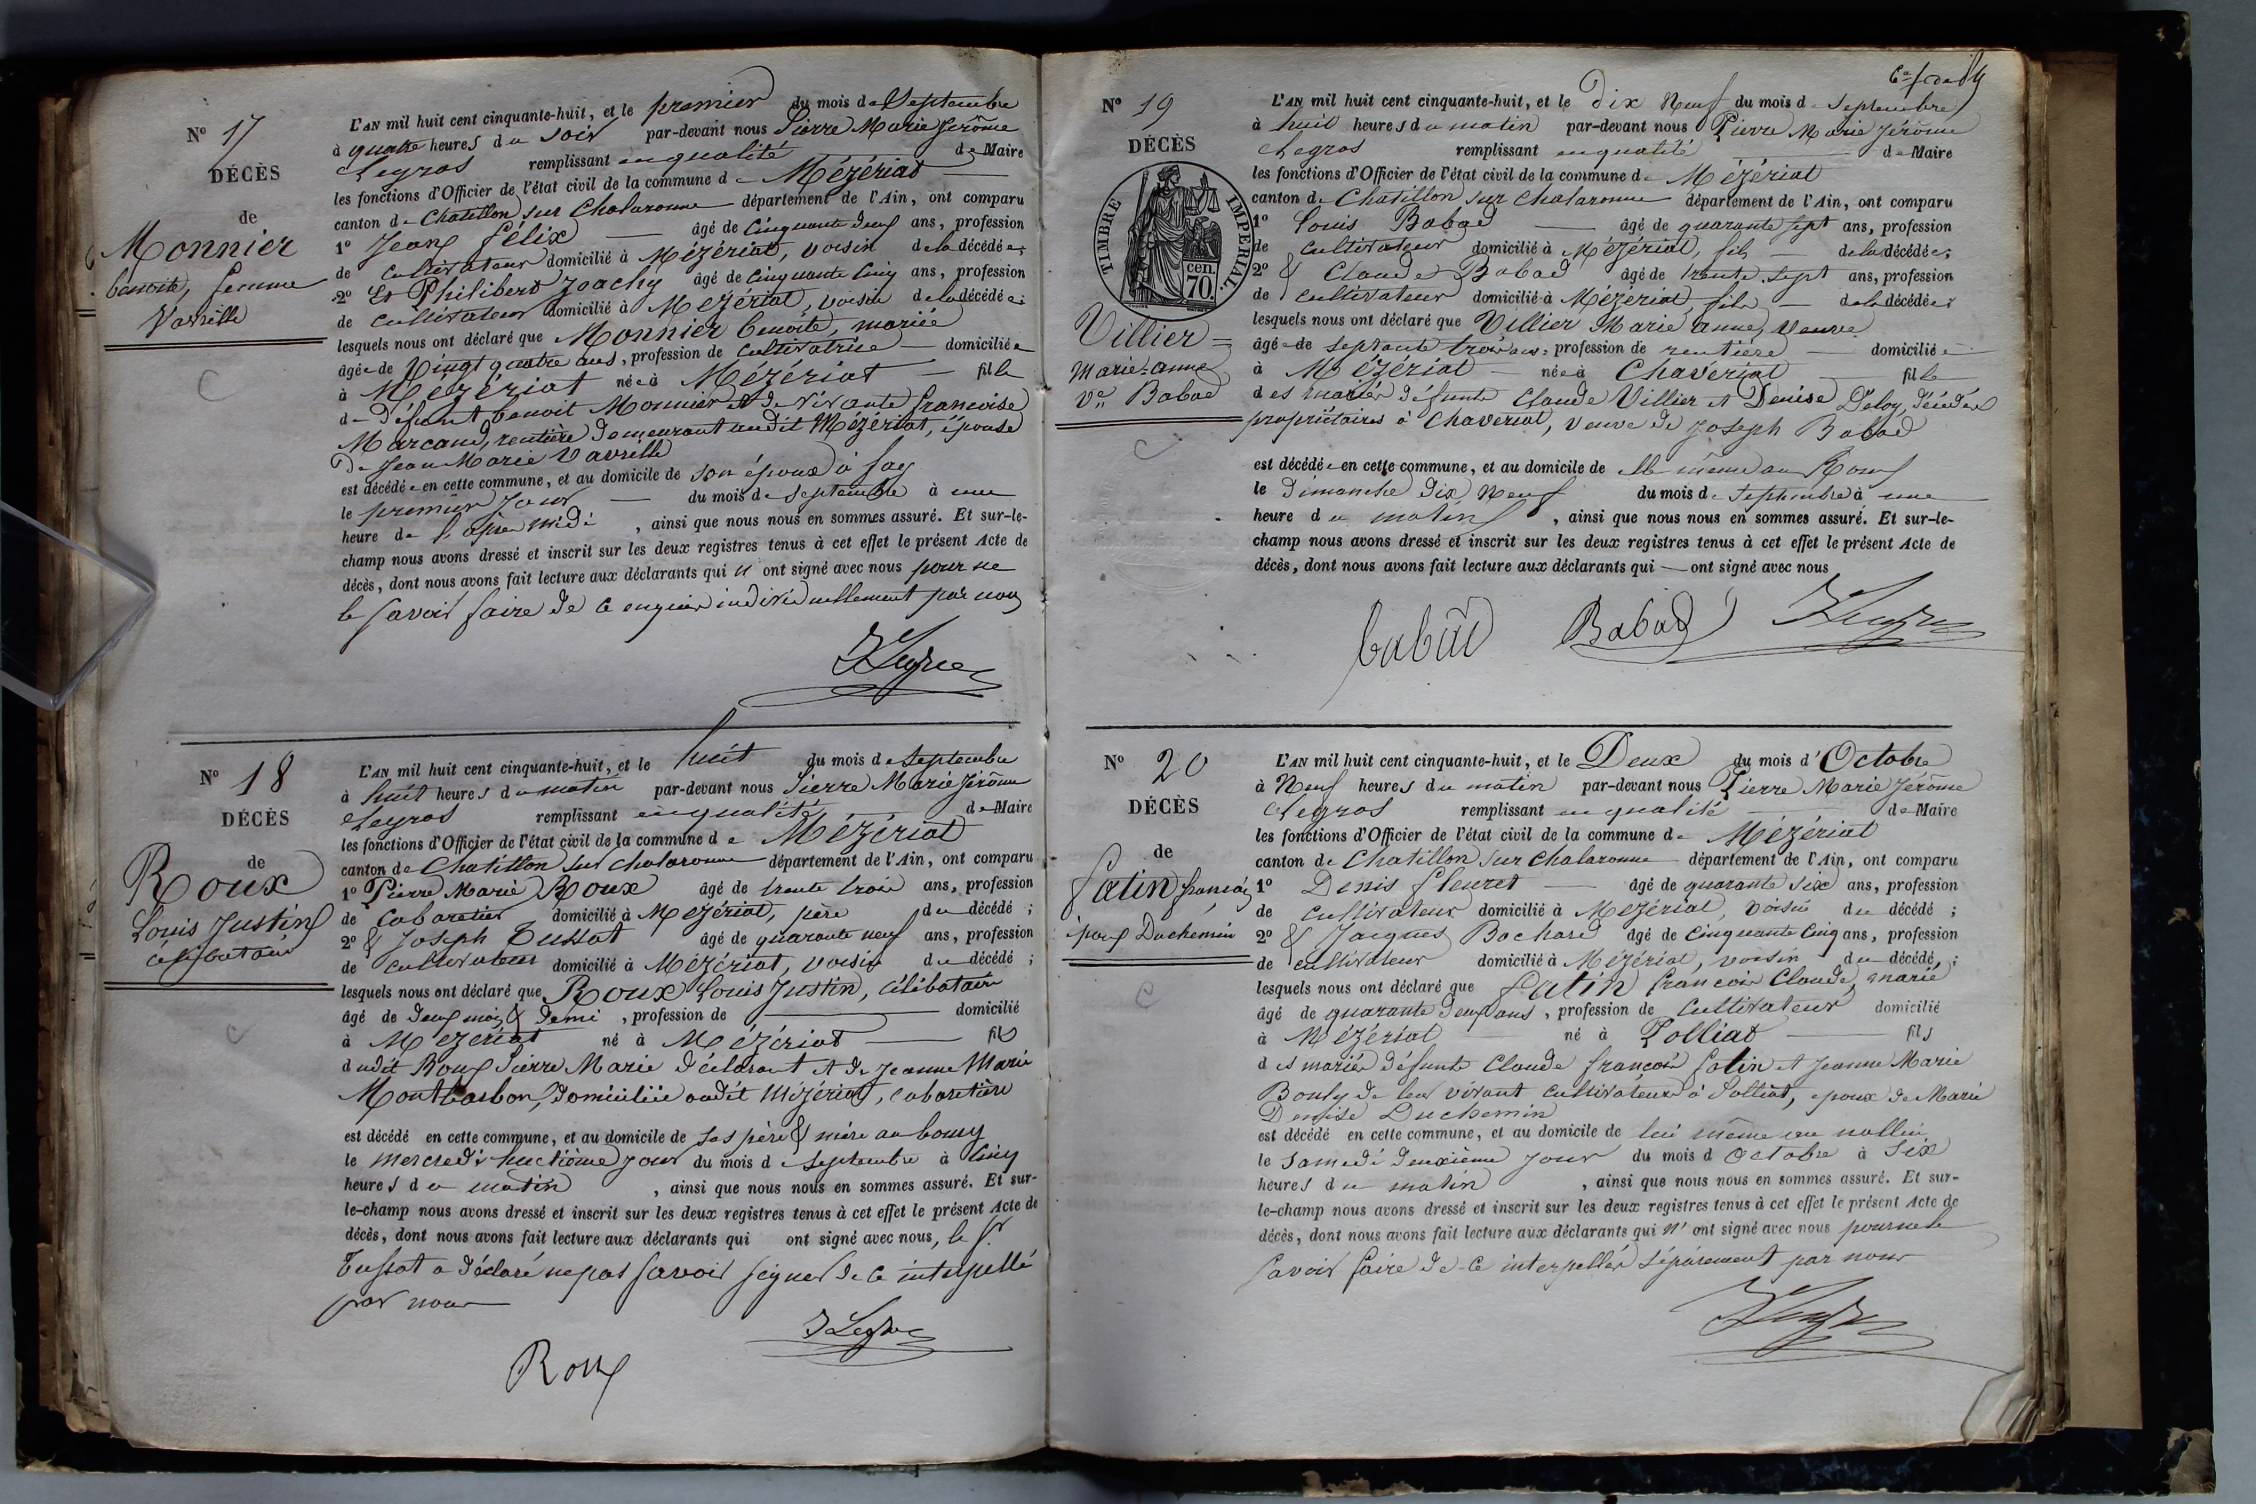 N° 17
DÉCÈS
de
Monnier
benoite, femme
Vavrille
L'AN mil huit cent cinquante-huit, et le premier du mois de Septembre
à quatre heures du soir par-devant nous Pierre Marie Jérôme
Legros remplissant en qualité de Maire
les fonctions d'Officier de l'état civil de la commune de Mézériat
canton de Chatillon sur Chalaronne département de l'Ain, ont comparu
1° Jean Félix âgé de Cinquante deux ans, profession
de Cultivateur domicilié à Mézériat, voisin de la décédée;
2° Et Philibert Joachy âgé de Cinquante Cinq ans, profession
de Cultivateur domicilié à Mézériat, voisin de la décédée;
lesquels nous ont déclaré que Monnier benoite, mariée
âgée de Vingt quatre ans, profession de Cultivatrice domiciliée
à Mézériat née à Mézériat fille
de défunt benoit Monnier et de vivante françoise
Marcand, rentière demeurant audit Mézériat, épouse
De Jean Marie Vavrille
est décédée en cette commune, et au domicile de son époux à fay
le premier jour du mois de Septembre à une
heure de l'après midi, ainsi que nous nous en sommes assuré. Et sur-le-
champ nous avons dressé et inscrit sur les deux registres tenus à cet effet le présent Acte de
décès, dont nous avons fait lecture aux déclarants qui n'ont signé avec nous pour ne
le savoir faire de ce enquis individuellement par nous
JLegros
N° 18
DÉCÈS
de
Roux
Louis Justin
célibataire
L'AN mil huit cent cinquante-huit, et le huit du mois de Septembre
à huit heures du matin par-devant nous Pierre Marie Jérôme
Legros remplissant en qualité de Maire
les fonctions d'Officier de l'état civil de la commune de Mézériat
canton de Chatillon sur Chalaronne département de l'Ain, ont comparu
1° Pierre Marie Roux âgé de trente trois ans, profession
de Cabaretier domicilié à Mézériat, père du décédé;
2° & Joseph Tussat âgé de quarante neuf ans, profession
de Cultivateur domicilié à Mézériat, voisin du décédé;
lesquels nous ont déclaré que Roux Louis Justin, Célibataire
âgé de deux mois & demi, profession de domicilié
à Mézériat né à Mézériat fils
dudit Roux Pierre Marie déclarant et de Jeanne Marie
Montbarbon, domiciliée audit Mézériat, cabaretière
est décédé en cette commune, et au domicile de ses père & mère au bourg
le mercredi huitième jour du mois de Septembre à Cinq
heures du matin, ainsi que nous nous en sommes assuré. Et sur-
le-champ nous avons dressé et inscrit sur les deux registres tenus à cet effet le présent Acte de
décès, dont nous avons fait lecture aux déclarants qui ont signé avec nous, le Sr
Tussat a déclaré ne pas savoir signer de ce interpellé
par nous
Roux JLegros
N° 19
DÉCÈS
TIMBRE IMPÉRIAL
70 cen.
Villier
Marie-anne
Ve Babad
L'AN mil huit cent cinquante-huit, et le Dix Neuf du mois de Septembre
à huit heures du matin par-devant nous Pierre Marie Jérôme
Legros remplissant en qualité de Maire
les fonctions d'Officier de l'état civil de la commune de Mézériat
canton de Chatillon sur Chalaronne département de l'Ain, ont comparu
1° Louis Babad âgé de quarante sept ans, profession
de Cultivateur domicilié à Mézériat, fils de la décédée;
2° & Claude Babad âgé de trente sept ans, profession
de Cultivateur domicilié à Mézériat, fils de la décédée;
lesquels nous ont déclaré que Villier Marie anne, Veuve
âgée de septante trois ans, profession de rentière domiciliée
à Mézériat née à Chaveriat fille
des mariés défunts Claude Villier et Denise Deloy, décédés
propriétaires à Chaveriat, veuve de Joseph Babad
est décédée en cette commune, et au domicile de elle même au
le Dimanche Dix Neuf du mois de Septembre à une
heure du matin, ainsi que nous nous en sommes assuré. Et sur-le-
champ nous avons dressé et inscrit sur les deux registres tenus à cet effet le présent Acte de
décès, dont nous avons fait lecture aux déclarants qui ont signé avec nous
babad Babad JLegros
N° 20
DÉCÈS
de
Fatin françois
époux Duchemin
L'AN mil huit cent cinquante-huit, et le Deux du mois d'Octobre
à Neuf heures du matin par-devant nous Pierre Marie Jérôme
Legros remplissant en qualité de Maire
les fonctions d'Officier de l'état civil de la commune de Mézériat
canton de Chatillon sur Chalaronne département de l'Ain, ont comparu
1° Denis fleuret âgé de quarante six ans, profession
de Cultivateur domicilié à Mézériat, voisin du décédé;
2° & Jacques Bochard âgé de Cinquante Cinq ans, profession
de cultivateur domicilié à Mézériat, voisin du décédé;
lesquels nous ont déclaré que Fatin françois Claude, marié
âgé de quarante deux ans, profession de Cultivateur domicilié
à Mézériat né à Polliat fils
des mariés défunts Claude françois fatin et Jeanne Marie
Bouly de leur vivant Cultivateurs à Polliat, époux de Marie
Denise Duchemin
est décédé en cette commune, et au domicile de lui même au
le Samedi deuxième jour du mois d'Octobre à Six
heures du matin, ainsi que nous nous en sommes assuré. Et sur-
le-champ nous avons dressé et inscrit sur les deux registres tenus à cet effet le présent Acte de
décès, dont nous avons fait lecture aux déclarants qui n'ont signé avec nous pour ne le
savoir faire de ce interpellés séparément par nous
JLegros